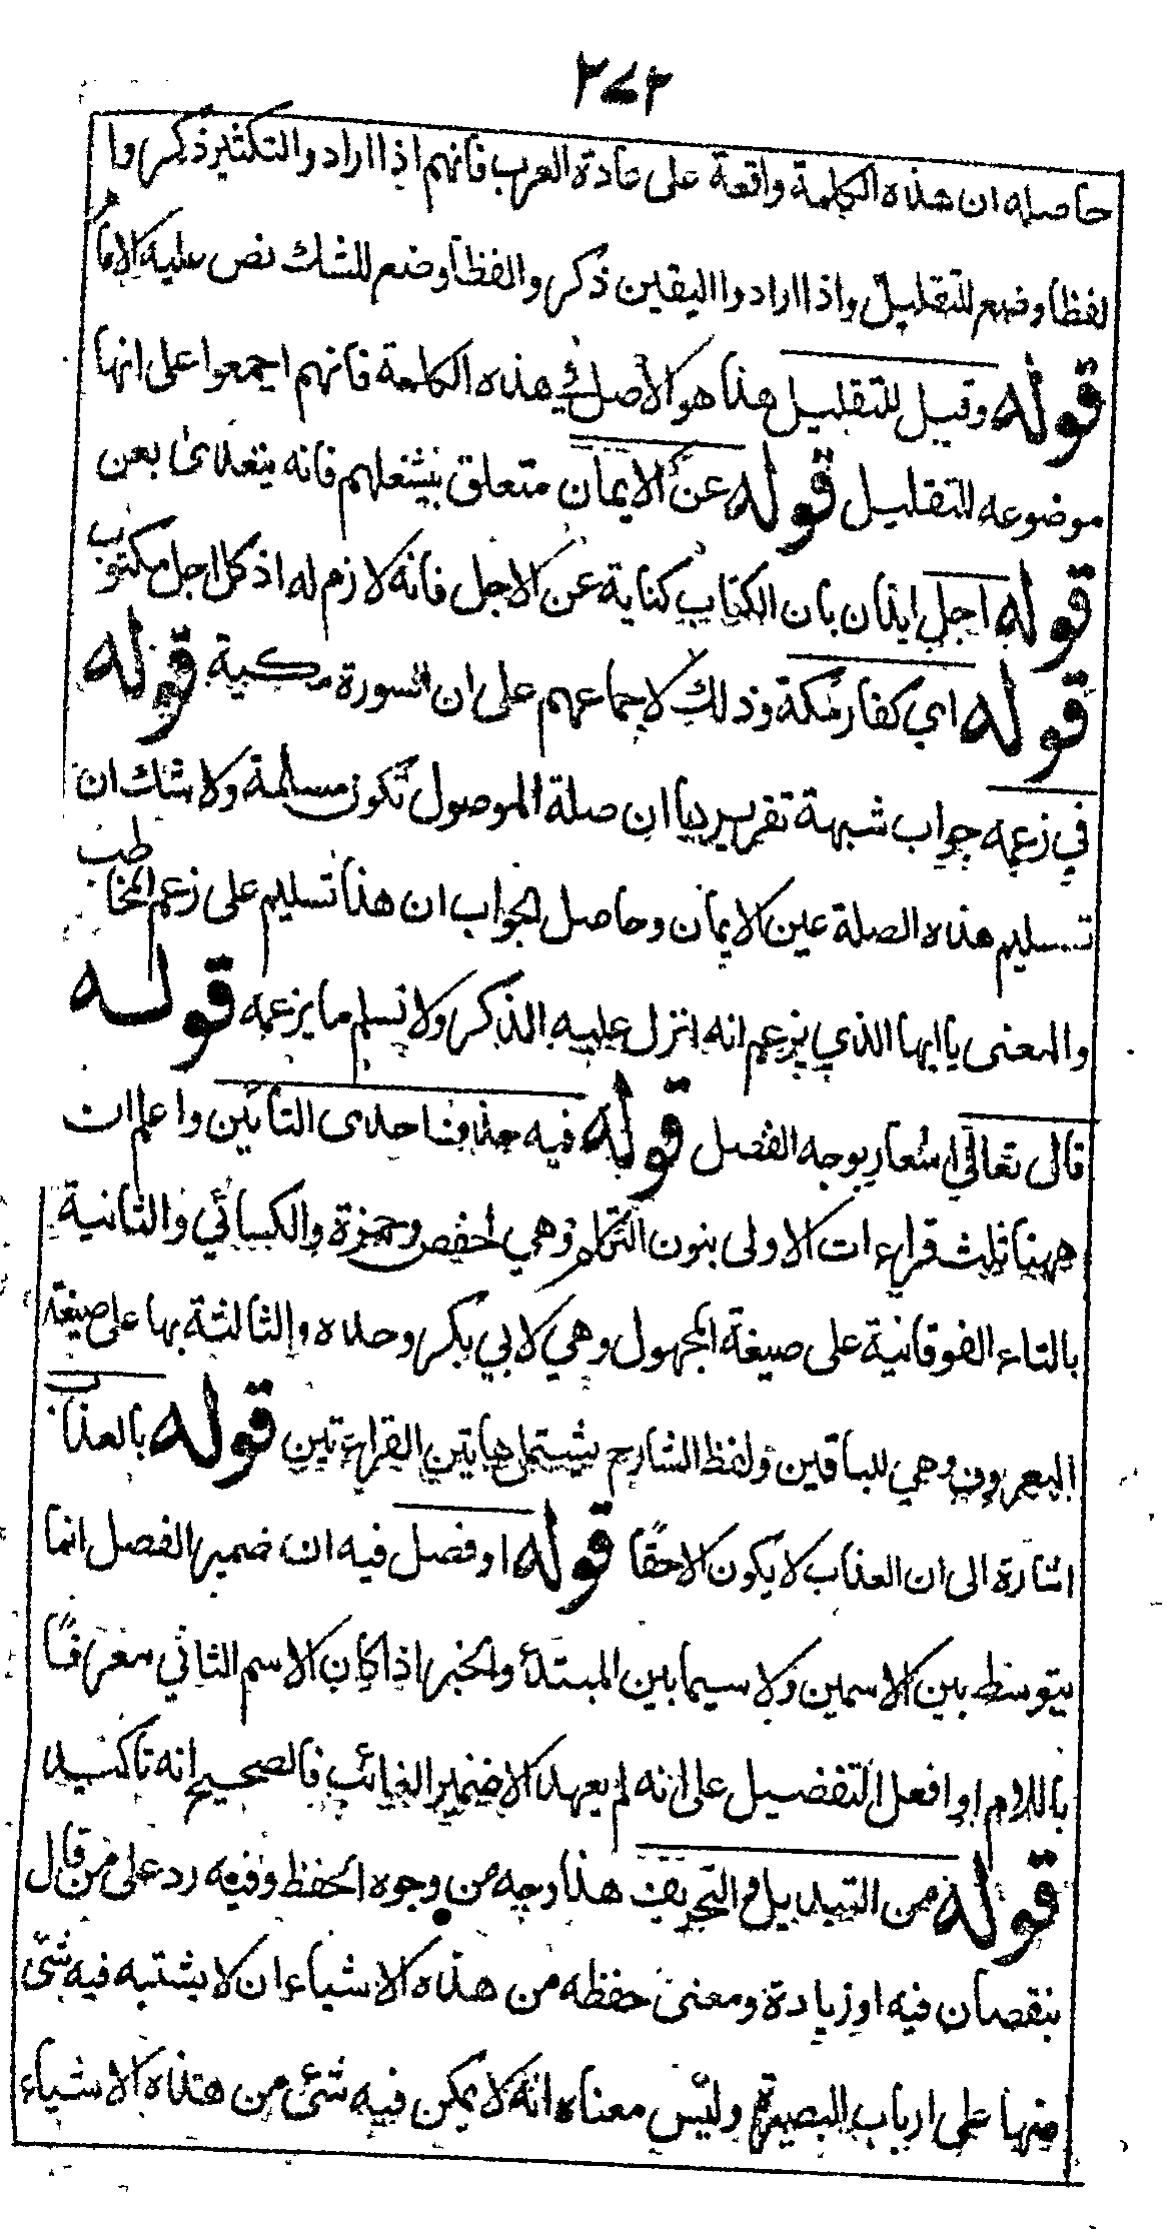 ٣٧٣
حاصله ان هذه الكلمة واقعة على عادة العرب فانهم اذا ارادوا التكثير ذكروا
لفظا وضع للتقليل واذا ارادوا اليقين ذكروا لفظا وضع للشك نص عليه الامام
قوله وقيل للتقليل هذا هو الاصل في هذه الكلمة فانهم اجمعوا على انها
موضوعه للتقليل قوله عن الايمان متعلق بيشغلهم فانه يتعدى بعن
قوله اجل ايذان بان الكتاب كناية عن الاجل فانه لازم له اذ كل اجل مكتوب
قوله اي كفار مكة وذلك لاجماعهم على ان السورة مكية قوله
في زعمه جواب شبهة تقريرها ان صلة الموصول تكون مسلمة ولا شك ان
تسليم هذه الصلة عين الايمان وحاصل الجواب ان هذا تسليم على زعم المخاطب
والمعنى يا ايها الذي يزعم انه انزل عليه الذكر ولا نسلم ما يزعمه قوله
قال تعالى اشعار بوجه الفصل قوله فيه حذف احدى التائين واعلم ان
ههنا ثلث قراءات الاولى بنون التكلم وهي لحفص وحمزة والكسائي والثانية
بالتاء الفوقانية على صيغة المجهول وهي لابي بكر وحده والثالثة بها على صيغة
المعروف وهي للباقين ولفظ الشارح يشتمل هاتين القراءتين قوله بالعذاب
اشارة الى ان العذاب لا يكون الا حقًا قوله او فصل فيه ان ضمير الفصل انما
يتوسط بين الاسمين ولا سيما بين المبتدأ والخبر اذا كان الاسم الثاني معرفًا
باللام او افعل التفضيل على انه لم يعهد الا ضمير الغائب فالصحيح انه تاكيد
قوله من التبديل والتحريف هذا وجه من وجوه الحفظ وفيه رد على من قال
بنقصان فيه او زيادة ومعنى حفظه من هذه الاشياء ان لا يشتبه فيه شئ
منها على ارباب البصيرة وليس معناه انه لا يمكن فيه شئ من هذه الاشياء